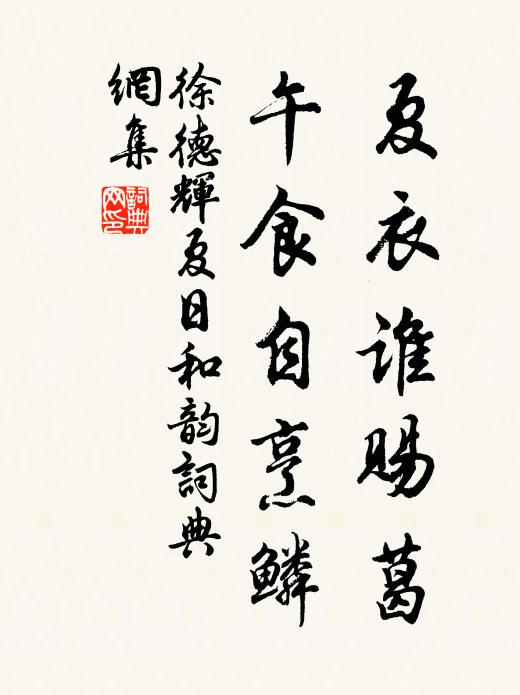 夏衣谁賜葛
午食自烹鱗
徐德輝夏日和韵詞典
網集
詞典
网印